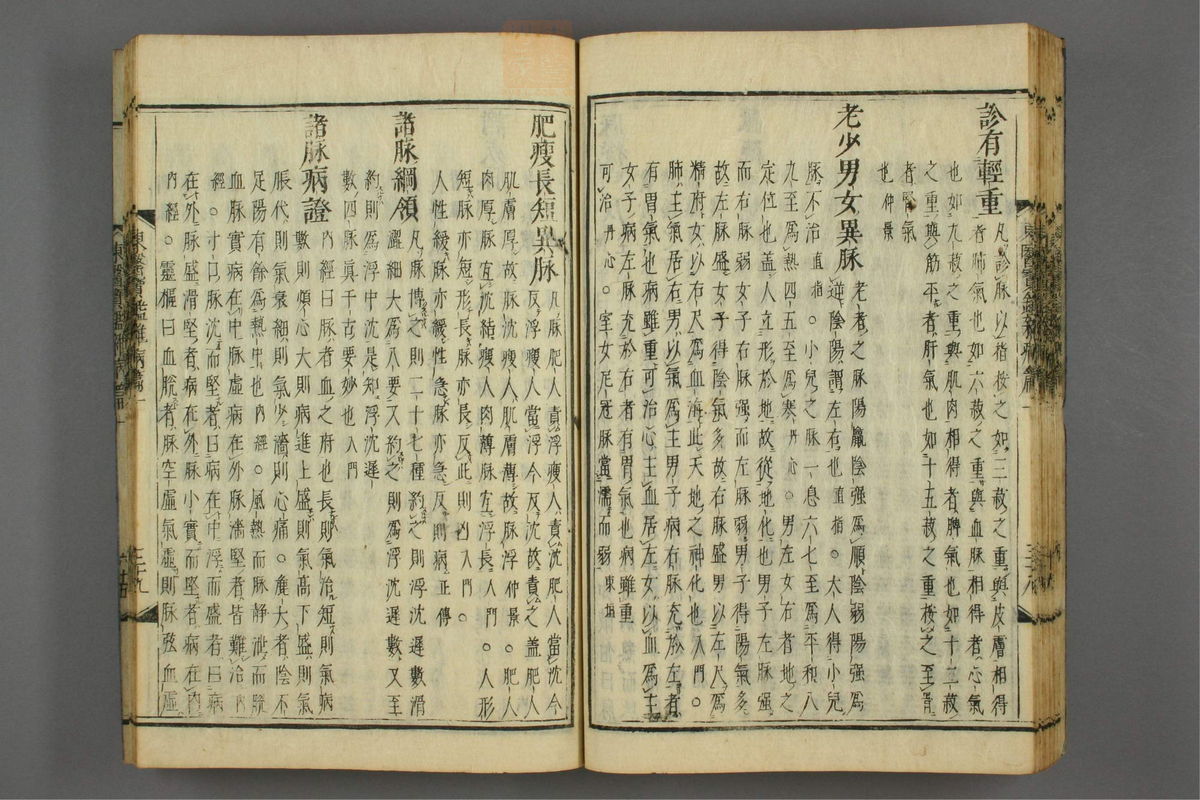 診有輕重 凡診脉以指按之如三菽之重與皮膚相得
者肺氣也如六菽之重與血脉相得者心氣
也如九菽之重與肌肉相得者脾氣也如十二菽
之重與筋平者肝氣也如十五菽之重按之至骨
者腎氣
也仲景
老少男女異脉 老者之脉陽羸陰强爲順陰弱陽强爲
逆陰陽謂左右也直指○大人得小兒
脉不治直指○小兒之脉一息六七至爲平和八
九至爲熱四五至爲寒丹心○男左女右者地之
定位也盖人立形於地故從地化也男子左脉强
而右脉弱女子右脉强而左脉弱男子得陽氣多
故左脉盛女子得陰氣多故右脉盛男以左尺爲
精府女以右尺爲血海此天地之神化也入門○
肺主氣居右男以氣爲主男子病右脉充於左者
有胃氣也病雖重可治心主血居左女以血爲主
女子病左脉充於右者有胃氣也病雖重
可治丹心○室女尼冠脉當濡而弱東垣
肥瘦長短異脉 凡脉肥人責浮瘦人責沈肥人當沈今
反浮瘦人當浮今反沈故責之盖肥人
肌膚厚故脉沈瘦人肌膚薄故脉浮仲景○肥人
肉厚脉宜沈結瘦人肉薄脉宜浮長入門○人形
短脉亦短形長脉亦長反此則凶入門○
人性緩脉亦緩性急脉亦急反則病正傳
諸脉綱領 凡脉博之則二十七種約之則浮沈遲數滑
澀細大爲八要又約之則爲浮沈遲數又至
約則爲浮中沈是知浮沈遲
數四脉眞千古要妙也入門
諸脉病證 內經曰脉者血之府也長則氣治短則氣病
數則煩心大則病進上盛則氣高下盛則氣
脹代則氣衰細則氣少濇則心痛○麁大者陰不
足陽有餘爲熱中也內經○風熱而脉静泄而脫
血脉實病在中脉虛病在外脉濇堅者皆難治內
經○寸口脉沈而堅者曰病在中浮而盛者曰病
在外脉盛滑堅者病在外脉小實而堅者病在內
內經○靈樞曰血脫者脉空虛氣虛則脉弦血虛